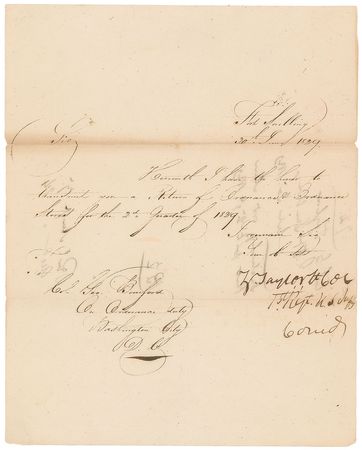 Fort Snelling
30th June 1829
Sir
Herewith I have the honor to
transmit you a Return of Ordnance & Ordnance
Stores for the 2d Quarter of 1829
I remain Sir
Your ob St
Z Taylor Lt Col
1st Regt U S Infy
Comdg
Col Geo. Bomford
On Ordnance duty
Washington City
D. C.